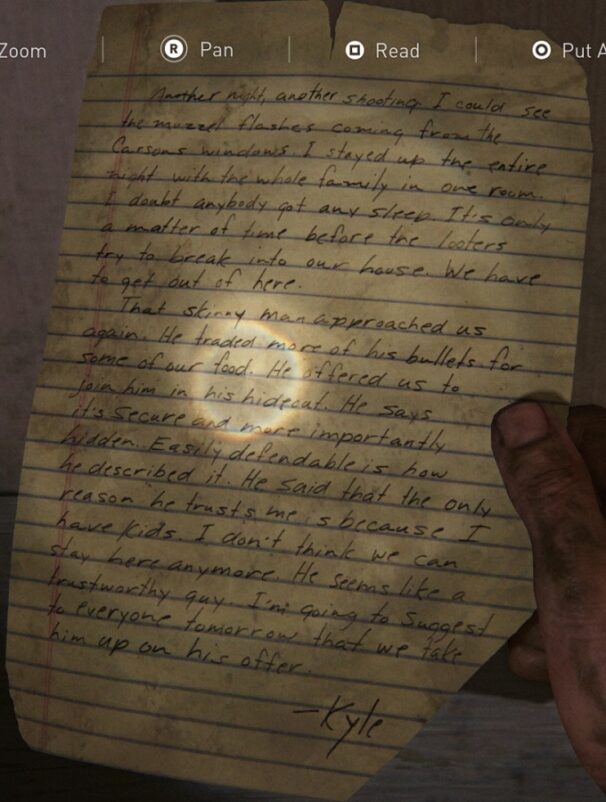 Zoom
R Pan
Read
Put A
Another night, another shooting. I could see
the muzzel flashes coming from the
Carsons windows. I stayed up the entire
night with the whole family in one room.
I doubt anybody got any sleep. It's only
a matter of time before the looters
try to break into our house. We have
to get out of here.
That skinny man approached us
again. He traded more of his bullets for
some of our food. He offered us to
join him in his hideout. He says
it's secure and more importantly
hidden. Easily defendable is how
he described it. He said that the only
reason he trusts me is because I
have kids. I don't think we can
stay here anymore. He seems like a
trustworthy guy. I'm going to suggest
to everyone tomorrow that we take
him up on his offer.
-Kyle